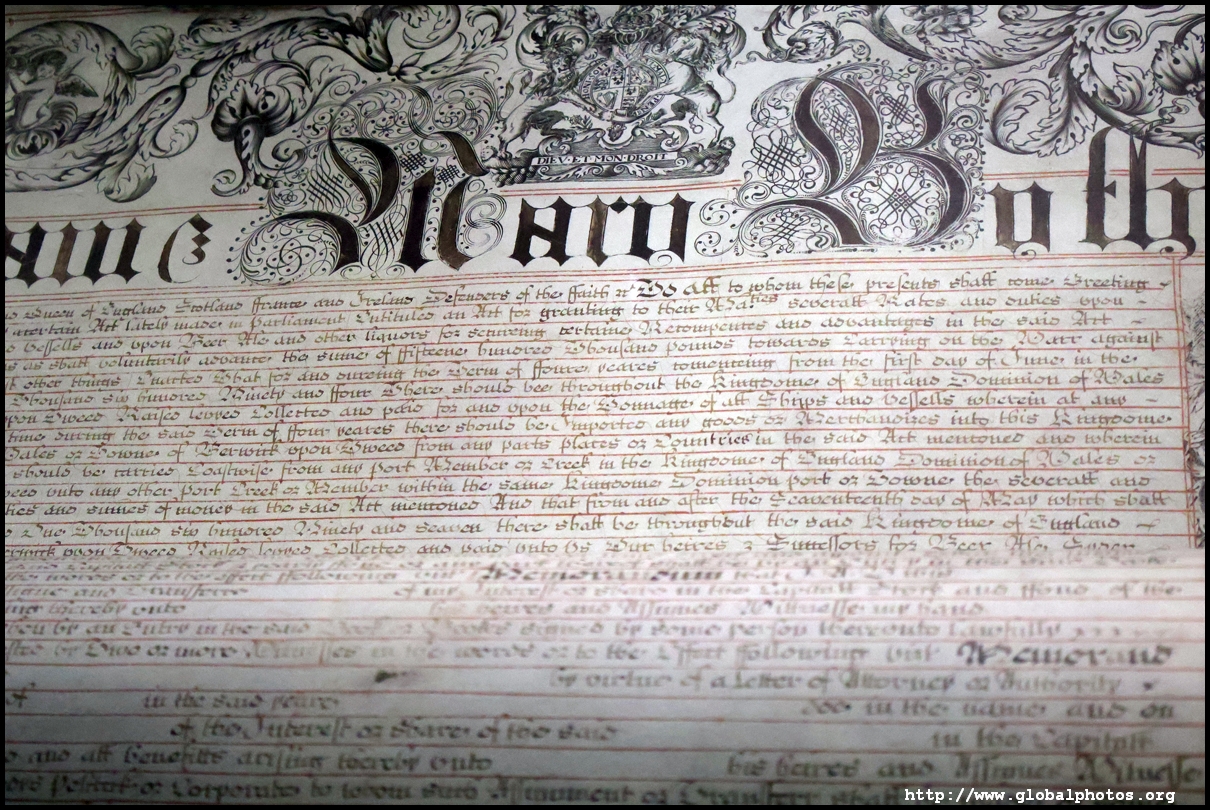 DIEV·ET·MON·DROIT
Mary By th
Queen of England Scotland ffrance and Ireland Defenders of the ffaith &c To all to whom these presents shall come Greeting
certain Act lately made in Parliament Entituled an Act for granting to their Maties severall Rates and duties upon
Vessells and upon Beer Ale and other liquors for secureing certaine Recompences and advantages in the said Act
as shall voluntarily advance the summe of ffifteene hundred Thousand pounds towards Carrying on the Warr against
other things Enacted That for and dureing the Terme of ffoure yeares comencing from the first day of June in the
Thousand six hundred Ninety and ffour There should bee throughout the Kingdome of England Dominion of Wales
upon Tweed Raised levyed Collected and paid for and upon the Tonnage of all Shipps and Vessells wherein at any
time during the said Terme of ffour yeares there should be Imported any goods or Merchandizes into this Kingdome
Wales or Towne of Berwick upon Tweed from any parts places or Countries in the said Act mentioned and wherein
should be carried Coastwise from any Port Member or Creek in the Kingdome of England Dominion of Wales or
unto any other Port Creek or Member within the same Kingdome Dominion port or Towne the severall and
and summes of money in the said Act mentioned And that from and after the Seaventeenth day of May which shall
One Thousand six hundred Ninety and seaven there shall be throughout the said Kingdome of England
upon Tweed Raised levyed Collected and paid unto Us Our heires & Successors for Beer Ale
the words or to the effect ffollowing Memorandum
of my Interest or share in the Capitall Stock and ffond of the
thereby unto heires and Assignes Witnesse my hand
by an Entry in the said signed by some person thereunto lawfully
by Two or more Witnesses in the words or to the Effect ffollowing Memorand
by virtue of a Letter of Attorney or Authority
of in the said yeare in the name and on
of the Interest or share of the said in the Capitall
and all benefitts arising thereby unto his heires and Assignes Witnesse
Politick or Corporate to whom such Assignment or Transferr
http://www.globalphotos.org